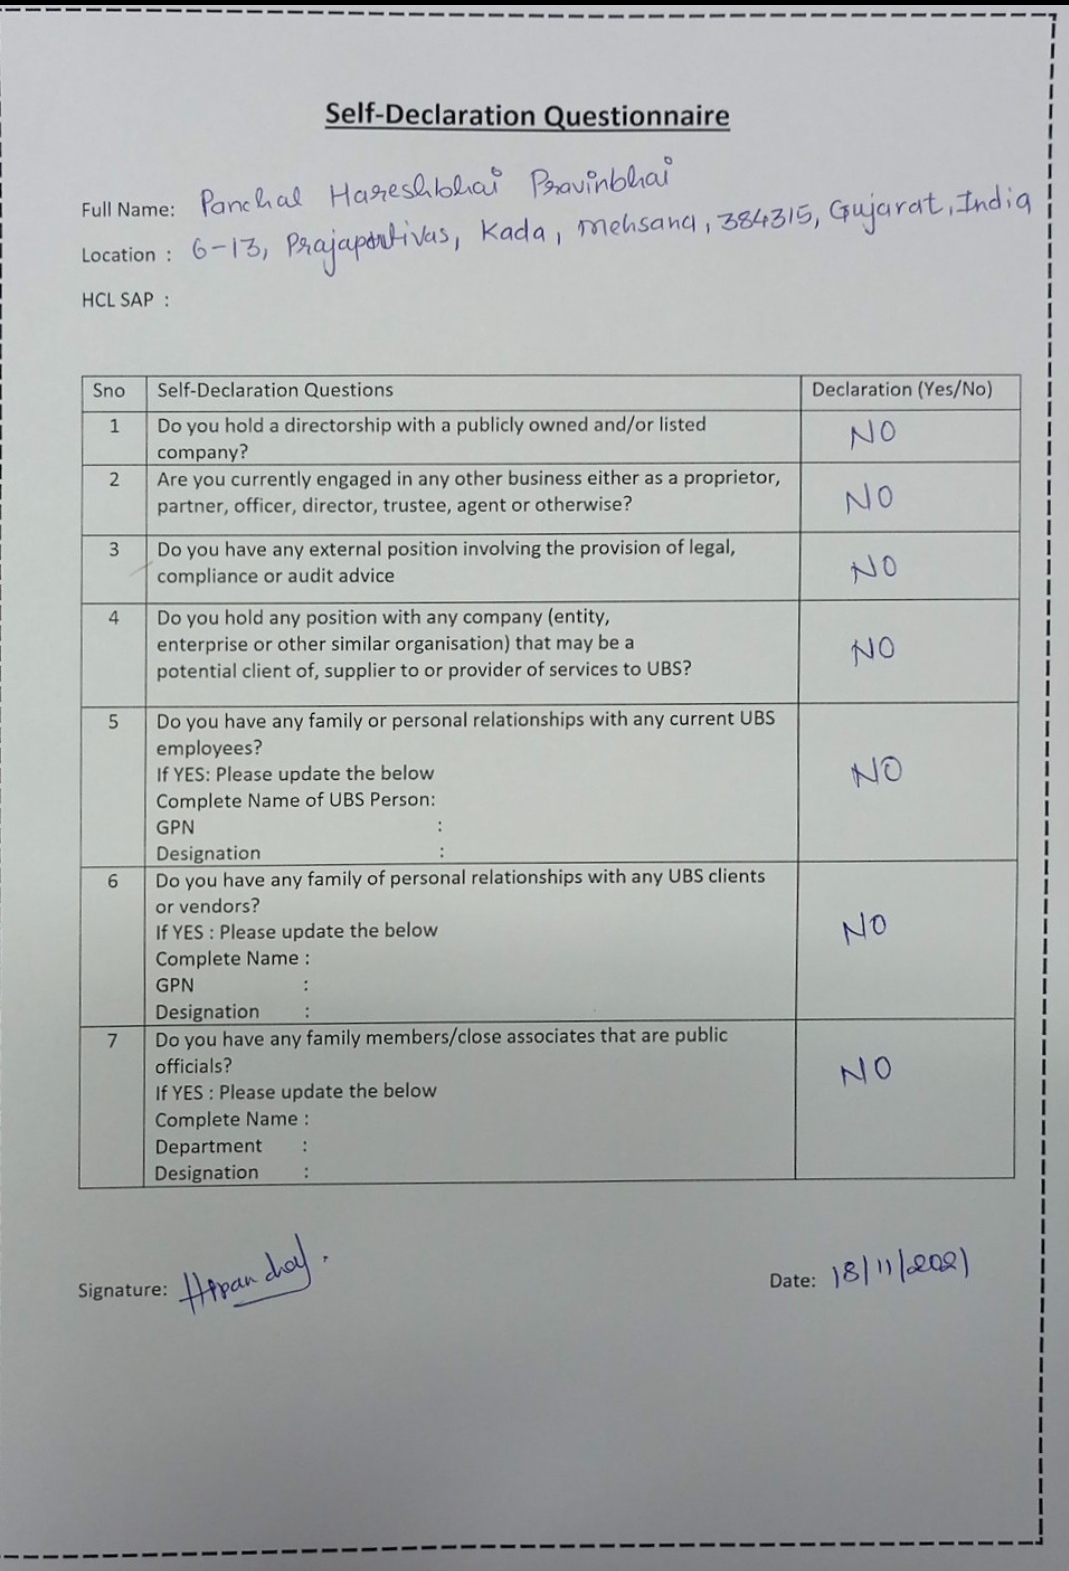 Self-Declaration Questionnaire
Full Name: Panchal Hareshbhai Pravinbhai
Location : 6-13, Prajapativas, Kada, Mehsana, 384315, Gujarat, India
HCL SAP :
Sno Self-Declaration Questions Declaration (Yes/No)
1 Do you hold a directorship with a publicly owned and/or listed
company?
NO
2 Are you currently engaged in any other business either as a proprietor,
partner, officer, director, trustee, agent or otherwise?
NO
3 Do you have any external position involving the provision of legal,
compliance or audit advice
NO
4 Do you hold any position with any company (entity,
enterprise or other similar organisation) that may be a
potential client of, supplier to or provider of services to UBS?
NO
5 Do you have any family or personal relationships with any current UBS
employees?
If YES: Please update the below
Complete Name of UBS Person:
GPN :
Designation :
NO
6 Do you have any family of personal relationships with any UBS clients
or vendors?
If YES : Please update the below
Complete Name :
GPN :
Designation :
NO
7 Do you have any family members/close associates that are public
officials?
If YES : Please update the below
Complete Name :
Department :
Designation :
NO
Signature: Date: 18/11/2021